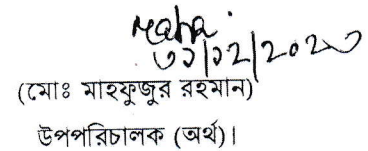 ৩১/১২/২০২৩
(মোঃ মাহফুজুর রহমান)
উপপরিচালক (অর্থ)।